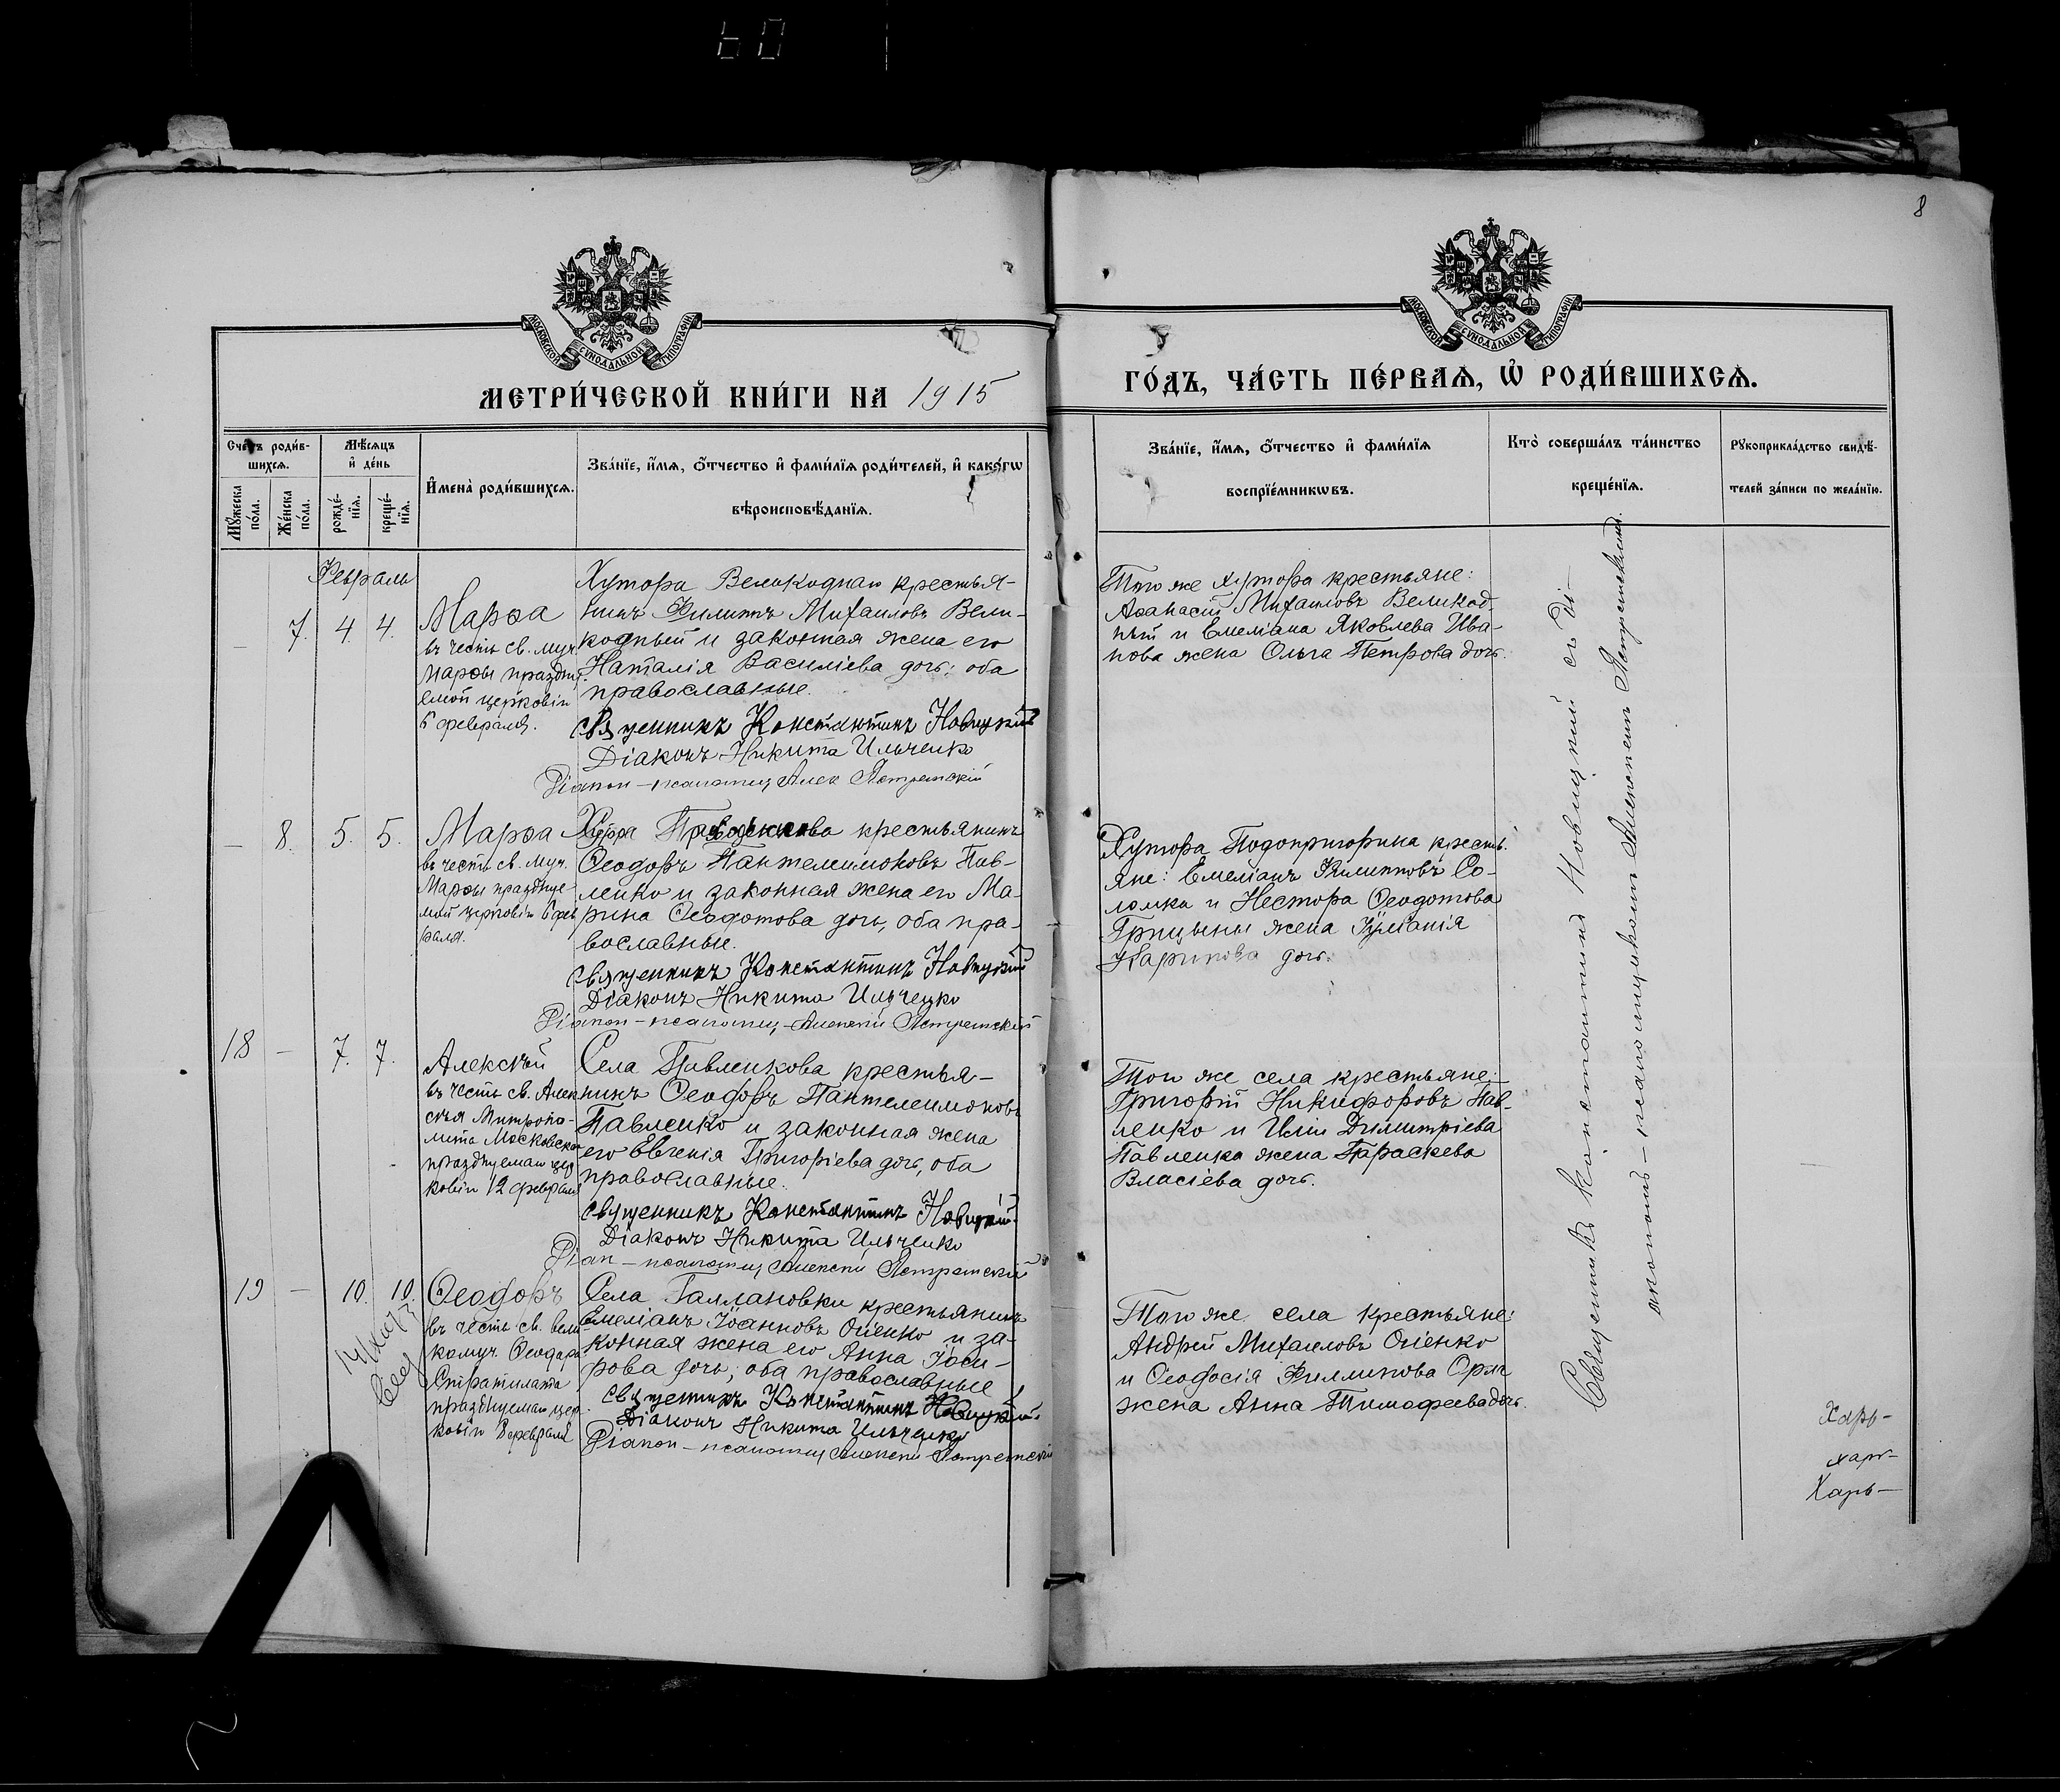 8
МОСКОВСКОЙ СѴНОДАЛЬНОЙ ТИПОГРАФІИ
МОСКОВСКОЙ СѴНОДАЛЬНОЙ ТИПОГРАФІИ
МЕТРИ́ЧЕСКОЙ КНИ́ГИ НА 1915
ГО́ДЪ, ЧА́СТЬ ПЕ́РВАѦ, Ѡ҆ РОДИ́ВШИХСѦ.
Сче́тъ роди́в-
шихсѧ.
Мꙋ́жеска
по́ла.
Же́нска
по́ла.
Мѣ́сѧцъ
и҆ де́нь
рожде́-
нїѧ.
креще́-
нїѧ.
И҆мена̀ роди́вшихсѧ.
Зва́нїе, и҆́мѧ, ѻ҆́тчество и҆ фами́лїѧ роди́телей, и҆ како́гѡ
вѣроисповѣ́данїѧ.
Зва́нїе, и҆́мѧ, ѻ҆́тчество и҆ фами́лїѧ
воспрїе́мникѡвъ.
Кто̀ соверша́лъ та́инство
креще́нїѧ.
Рꙋкоприкла́дство свидѣ́-
телей за́писи по жела́нїю.
Февраль
– 7. 4 4.
Марѳа
въ честь св. муч.
Марѳы праздну
емой церковію
6 февраля.
Хутора Великоднаго крестья-
нинъ Филиппъ Михаиловъ Вели-
кодный и законная жена его
Наталія Василіева дочь; оба
православные.
Священникъ Константинъ Новицкій
Діаконъ Никита Ильченко
Діакон-псаломщ Алек Ястремскій
Того же хутора крестьяне:
Аѳанасій Михаиловъ Великод-
ный и Емеліана Яковлева Ива-
нова жена Ольга Петрова дочь.
– 8. 5. 5.
Марѳа
въ честь св. муч.
Марѳы праздnуе-
мой церковію 6 фев
раля.
крестьянинъ
Ѳеодоръ Пантелеимоновъ Пав-
ленко и законная жена его Ма-
рина Ѳеодотова дочь, оба пра-
вославные.
Священникъ Константинъ Новицкій
Діаконъ Никита Ильченко
Діакон-псаломщ-Алексѣй Ястремскій
Хутора Подопригорина кресть-
яне: Емеліанъ Филипповъ Со-
ломка и Нестора Ѳеодотова
Грицыны жена Іуліанія
дочь.
18 – 7. 7.
Алексѣй
въ честь св. Алек
сѣя Митропо-
лита Московска
празднуемаго цер
ковію 12 февраля
Села Павленкова крестья-
нинъ Ѳеодоръ Пантелеимоновъ
Павленко и законная жена
его Евгенія Григоріева дочь, оба
православные.
Священникъ Константинъ Новицкій.
Діаконъ Никита Ильченко
Діак-псаломщ Алексѣй Ястремскій
Того же села крестьяне:
Григорій Никифоровъ Пав-
ленко и Иліи Димитріева
Павленка жена Параскева
Власіева дочь.
19 – 10. 10.
Ѳеодоръ
въ честь св. вели-
комуч. Ѳеодора
Стратилата
празднуемаго цер-
ковію 8 февраля
Села Галлановки крестьянинъ
Емеліанъ Іоанновъ Оліенко и за-
конная жена его Анна
дочь; оба православные
Священникъ Константинъ Новицкій.
Діаконъ Никита Ильченко
Діакон-псаломщ Алексѣй Ястремскій
Того же села крестьяне:
Андрей Михаиловъ Оліенко
и Ѳеодосія Филлипова
жена Анна Тимоѳеева дочь.
Священникъ Константинъ Новицкій съ Ді-
акономъ-псаломщикомъ Алексѣемъ Ястремскимъ.
Харь-
харь-
Харь-